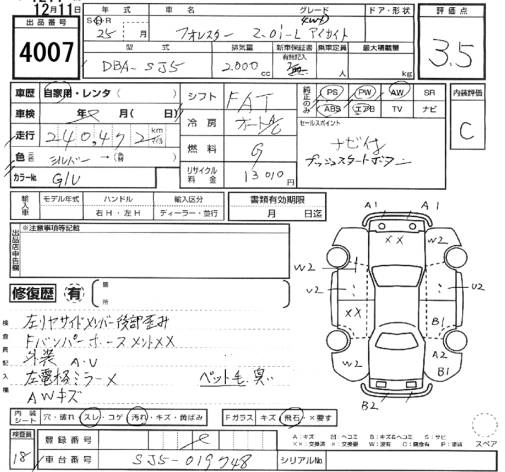 12月11日
出品番号
4007
年 式
SHR
25 年 月
グレード
4WD
フォレスター 2.0i-L アイサイト
ドア・形状
評価点
3.5
型 式
DBA-SJ5
排気量
2,000 cc
新車保証書
有無記入
乗車定員
人
最大積載量
kg
車歴 自家用・レンタ ( )
車検 年 月( 日)
走行 240,472 km
色 シルバー →(替)
カラーNo. G1U
シフト FAT
冷房 オートA/C
燃料 G
リサイクル料金 13010 円
純正のみ PS PW AW SR
ABS エアB TV ナビ
セールスポイント
ナビ付
プッシュスタートボタン
内装評価
C
輸入車 モデル年式 ハンドル 輸入区分
右H・左H ディーラー・並行
書類有効期限
月 日迄
出品店申告欄
※注意事項等記載
修復歴 有 箇所
検査員記入欄
左リヤサイドメンバー後部歪み
Fバンパーホースメント××
外装 A・U
左電格ミラー×
ペット毛、臭い
AWキズ
A1 A1
××
W2 W2
U2 U2
×× B1
A2
B1
B2
内装シート 穴・破れ スレ・コゲ 汚れ・キズ・黄ばみ
Fガラス キズ・飛石・×要す
検査員
18
登録番号
車台番号 SJ5-019748
シリアルNo.
A:キズ U:ヘコミ B:キズ&ヘコミ S:サビ
××:交換済 ×:交換要 W:波 C:腐食有 P:塗装
スペア